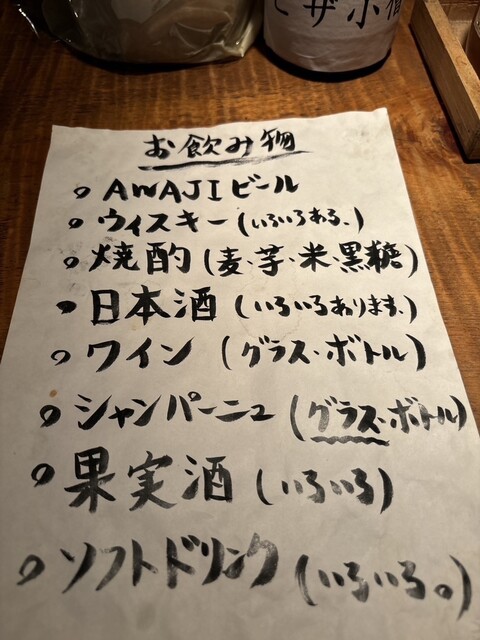 ピザ小僧
お飲み物
AWAJIビール
ウィスキー(いろいろある。)
焼酎(麦・芋・米・黒糖)
日本酒(いろいろあります。)
ワイン(グラス・ボトル)
シャンパーニュ(グラス・ボトル)
果実酒(いろいろ)
ソフトドリンク(いろいろ。)